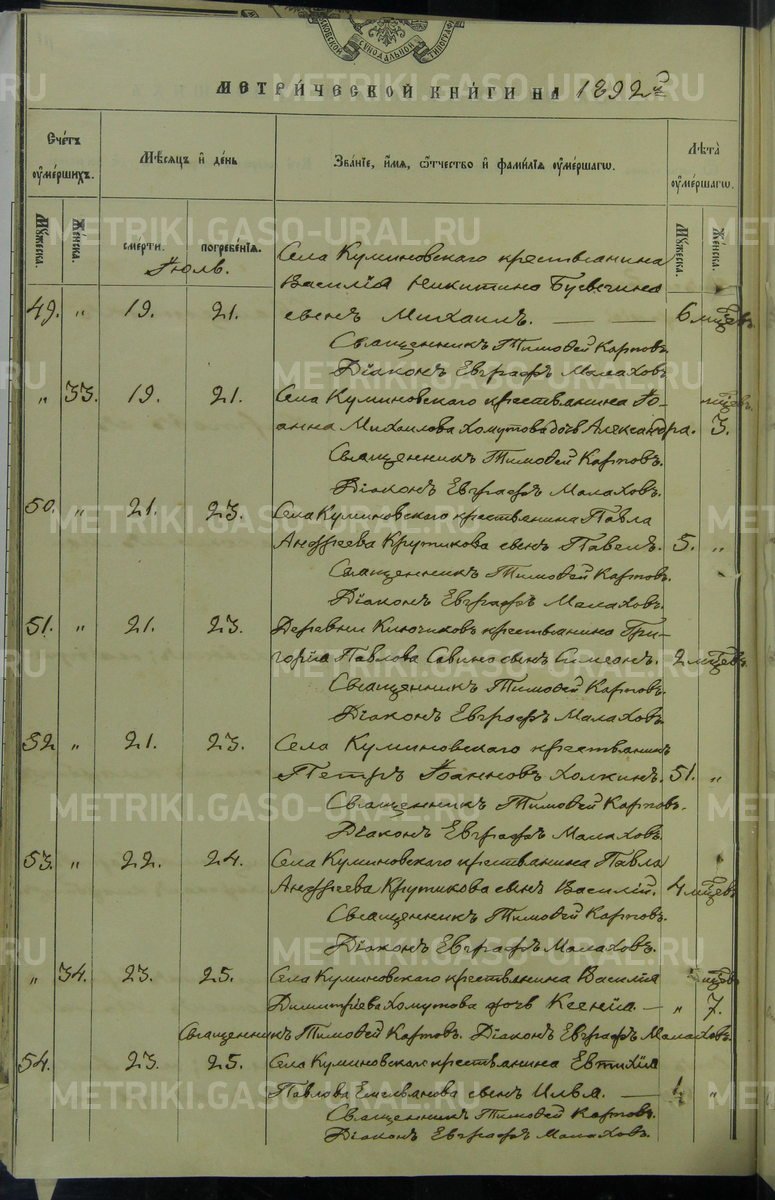 МОСКОВСКОЙ СѴНОДАЛЬНОЙ ТИПОГРАФ
МЕТРИ́ЧЕСКОЙ КНИ́ГИ НА 1892й
Сче́тъ оуме́ршихъ.
Мѣ́сяцъ и де́нь
Зва́нїе, и́мя, ѻ́тчество и фами́лїя оуме́ршагѡ.
Лѣта̀ оуме́ршагѡ.
Му́жеска. Же́нска. сме́рти. погребе́нїя. Му́жеска. Же́нска.
Іюль.
Села Куминовскаго крестьянина
Василія Никитина
49. „ 19. 21. сынъ Михаилъ. — — 6 мцевъ
Священникъ Тимофей Карповъ.
Діаконъ Евграфъ Малаховъ.
„ 33. 19. 21. Села Куминовскаго крестьянина Іо- мцевъ
анна Михаилова Хомутова дочь Александра. 3.
Священникъ Тимофей Карповъ.
Діаконъ Евграфъ Малаховъ.
50. „ 21. 23. Села Куминовскаго крестьянина Павла
Андреева Крутикова сынъ Павелъ. 5. „
Священникъ Тимофей Карповъ.
Діаконъ Евграфъ Малаховъ.
51. „ 21. 23. Деревни Ключиковъ крестьянина Гри-
горія Павлова Савина сынъ Симеонъ. 2 мцевъ
Священникъ Тимофей Карповъ.
Діаконъ Евграфъ Малаховъ.
52 „ 21. 23. Села Куминовскаго крестьянинъ
Петръ Іоанновъ Холкинъ. 51. „
Священникъ Тимофей Карповъ.
Діаконъ Евграфъ Малаховъ.
53. „ 22. 24. Села Куминовскаго крестьянина Павла
Андреева Крутикова сынъ Василій. 4 мцевъ
Священникъ Тимофей Карповъ.
Діаконъ Евграфъ Малаховъ.
„ 34. 23. 25. Села Куминовскаго крестьянина Василія мцевъ
Димитріева Хомутова дочь Ксенія. — „ 7.
Священникъ Тимофей Карповъ. Діаконъ Евграфъ Малаховъ.
54. 23. 25. Села Куминовскаго крестьянина Евтихія
Павлова Емельянова сынъ Илья. — „
Священникъ Тимофей Карповъ.
Діаконъ Евграфъ Малаховъ.
METRIKI.GASO-URAL.RU